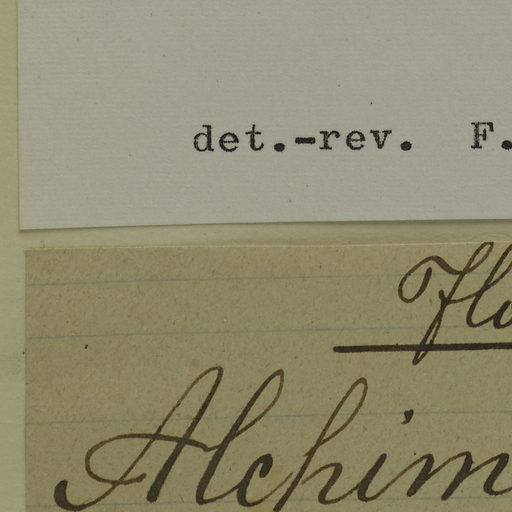 det.-rev. F.
Flo
Alchim